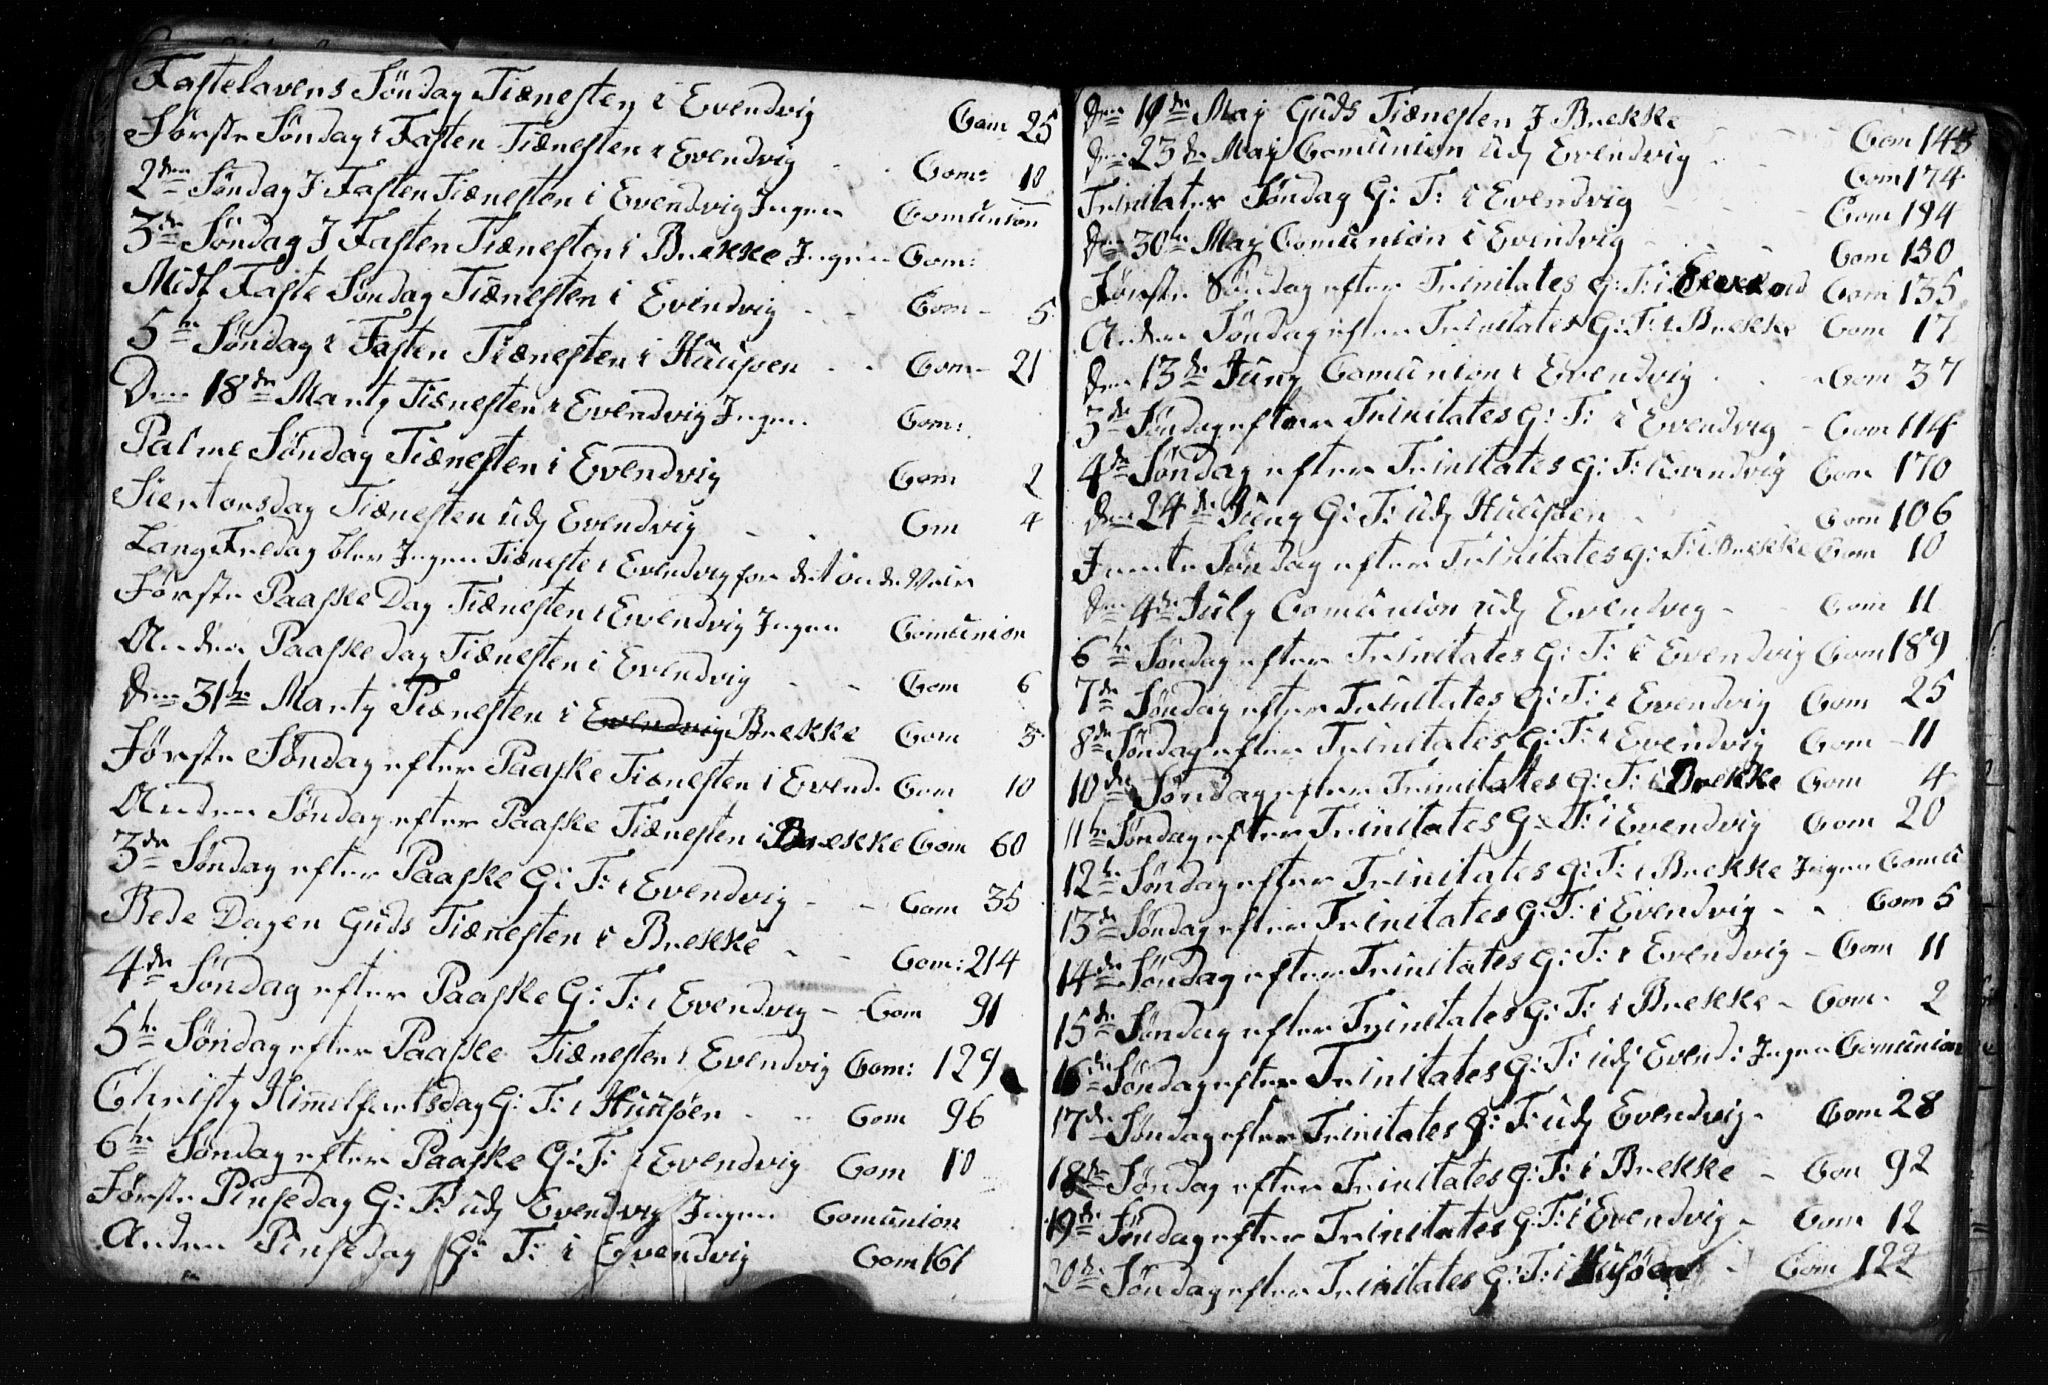 Fastelavens Söndag Tiænesten i Evendvig Com 25
Förste Söndag i Fasten Tiænesten i Evendvig Com: 10
2den Söndag I Fasten Tiænesten i Evendvig Ingen Comunion
3de Söndag I Fasten Tiænesten i Brekke Ingen Com:
Midf Faste Söndag Tiænesten i Evendvig - - Com - 5
5te Söndag i Fasten Tiænesten i Huusöen - - Com - 21
Den 18de Marty Tiænesten i Evendvig Ingen Com:
Palme Söndag Tiænesten i Evendvig Com 2
Siertorsdag Tiænesten udj Evendvig - - Cm 4
Lang Fredag blev Ingen Tiæneste i Evendvig for det onde Veir
Förste Paaske Dag Tiænesten i Evendvig Ingen Comunion
Anden Paaske dag Tiænesten i Evendvig - - Com 6
Den 31te Marty Tiænesten i Evendvig Brekke Com 5
Förste Söndag efter Paaske Tiænesten i Evend. Com 10
Anden Söndag efter Paaske Tiænesten i Brekke Com 60
3de Söndag efter Paaske G: T: i Evendvig - - Com 35
Bede Dagen Guds Tiænesten i Brekke - - Com: 214
4de Söndag efter Paaske G: T: i Evendvig - Com 91
5te Söndag efter Paaske Tiænesten i Evendvig Com: 129
Christy Himmelfartsdag G: T: i Huusöen - - Com 96
6te Söndag efter Paaske G: T: i Evendvig Com 10
Förste Pinsedag G: T: udj Evendvig Ingen Comunion
Anden Pinsedag G: T: i Evendvig Com 161
Den 19de May Guds Tiænesten I Brekke - - - Com 145
Den 23de May Comunion udj Evendvig - - Com 174
Trinitates Söndag G: T: i Evendvig - - Com 194
Den 30te May Comunion i Evendvig - - Com 130
Förste Söndag efter Trinitates G: T: i Com 135
Anden Söndag efter Trinitates G: T: i Brekke Com 17
Den 13de Juny Comunion i Evendvig - - Com 37
3de Söndag efter Trinitates G: T: i Evendvig - Com 114
4de Söndag efter Trinitates G: T: i Evendvig Com 170
Den 24de Juny G: T: udj Huusöen - Com 106
Femte Söndag efter Trinitates G: T: i Brekke Com 10
Den 4de July Comunion udj Evendvig - - Com 11
6te Söndag efter Trinitates G: T: i Evendvig Com 189
7de Söndag efter Trinitates G: T: i Evendvig Com 25
8de Söndag efter Trinitates G: T: i Evendvig Com - 11
10de Söndag efter Trinitates G: T: i Brekke Com 4
11te Söndag efter Trinitates G: T: i Evendvig Com 20
12te Söndag efter Trinitates G: T: i Brekke Ingen Comu
13de Söndag efter Trinitates G: T: i Evendvig - - Com 5
14de Söndag efter Trinitates G: T: i Evendvig - Com 11
15de Söndag efter Trinitates G: T: i Brekke - Com - 2
16de Söndag efter Trinitates G: T: udj Evend: Ingen Comunion
17de Söndag efter Trinitates G: T: udj Evendvig - Com 28
18de Söndag efter Trinitates G: T: i Brekke - Com 92
19de Söndag efter Trinitates G: T: i Evendvig - Com 12
20de Söndag efter Trinitates G: T: i Husöen - Com 122